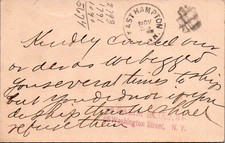 2793
779
1094
5071
EASTHAMPTON
NOV
Kindly cancel our
or der as we begged
you several times to ship
but you did not if you
do ship them we shall
refuse them
Washington Street, N. Y.